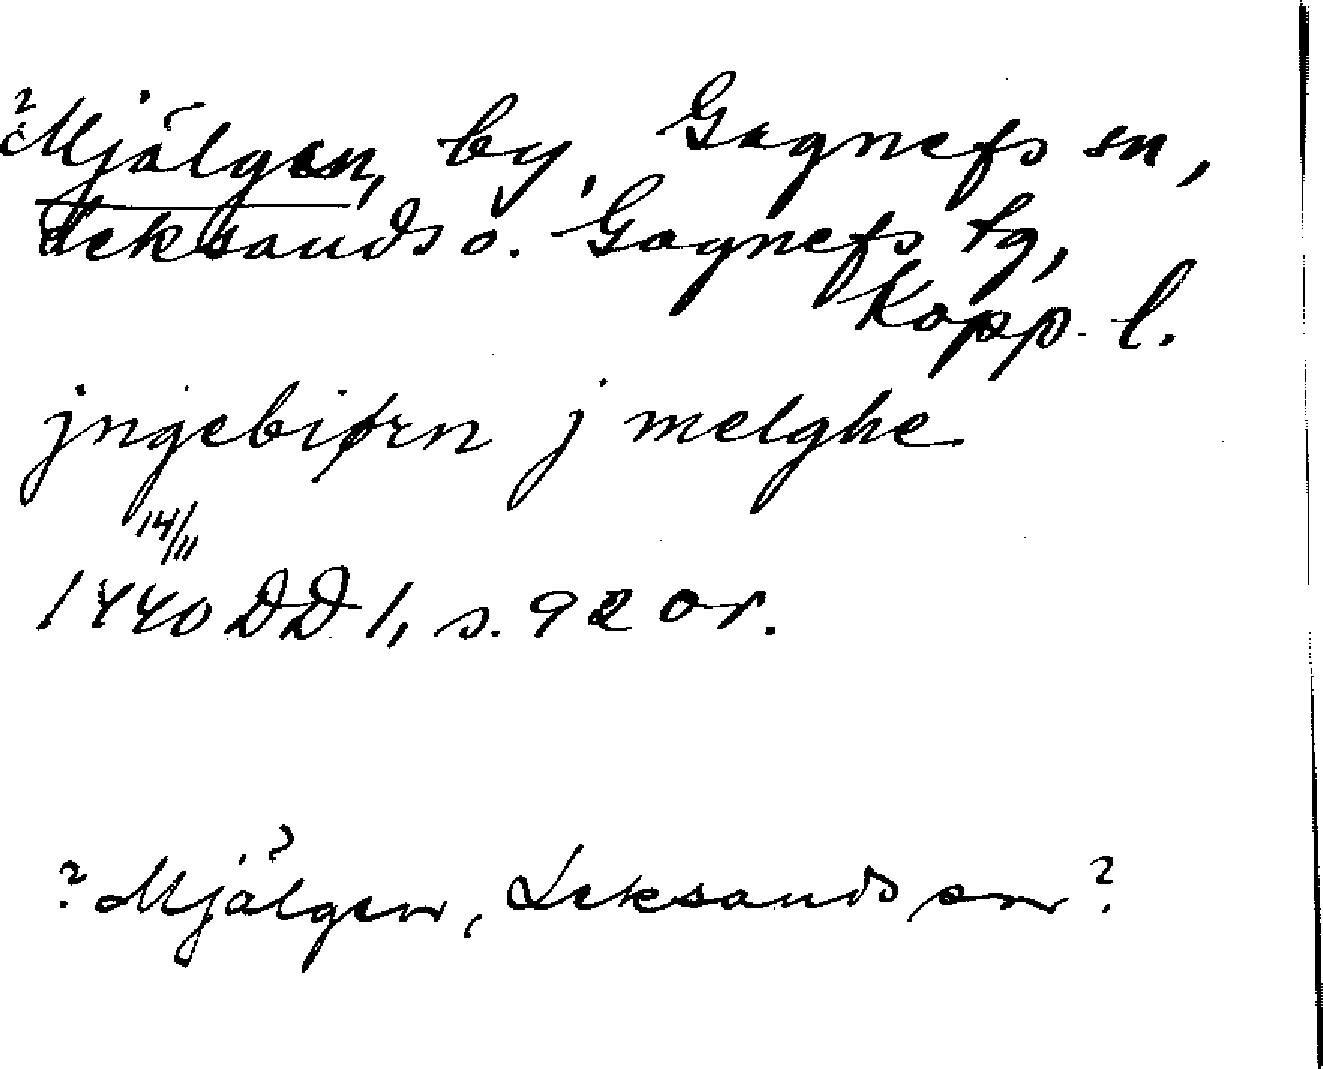 ? Mjälgen, by, Gagnefs sn,
Leksands o. Gagnefs tg,
Kopp. l.
jngebiørn j melghe
14/11
1440 DD 1, s. 92 or.
? Mjälgen, Leksands sn ?